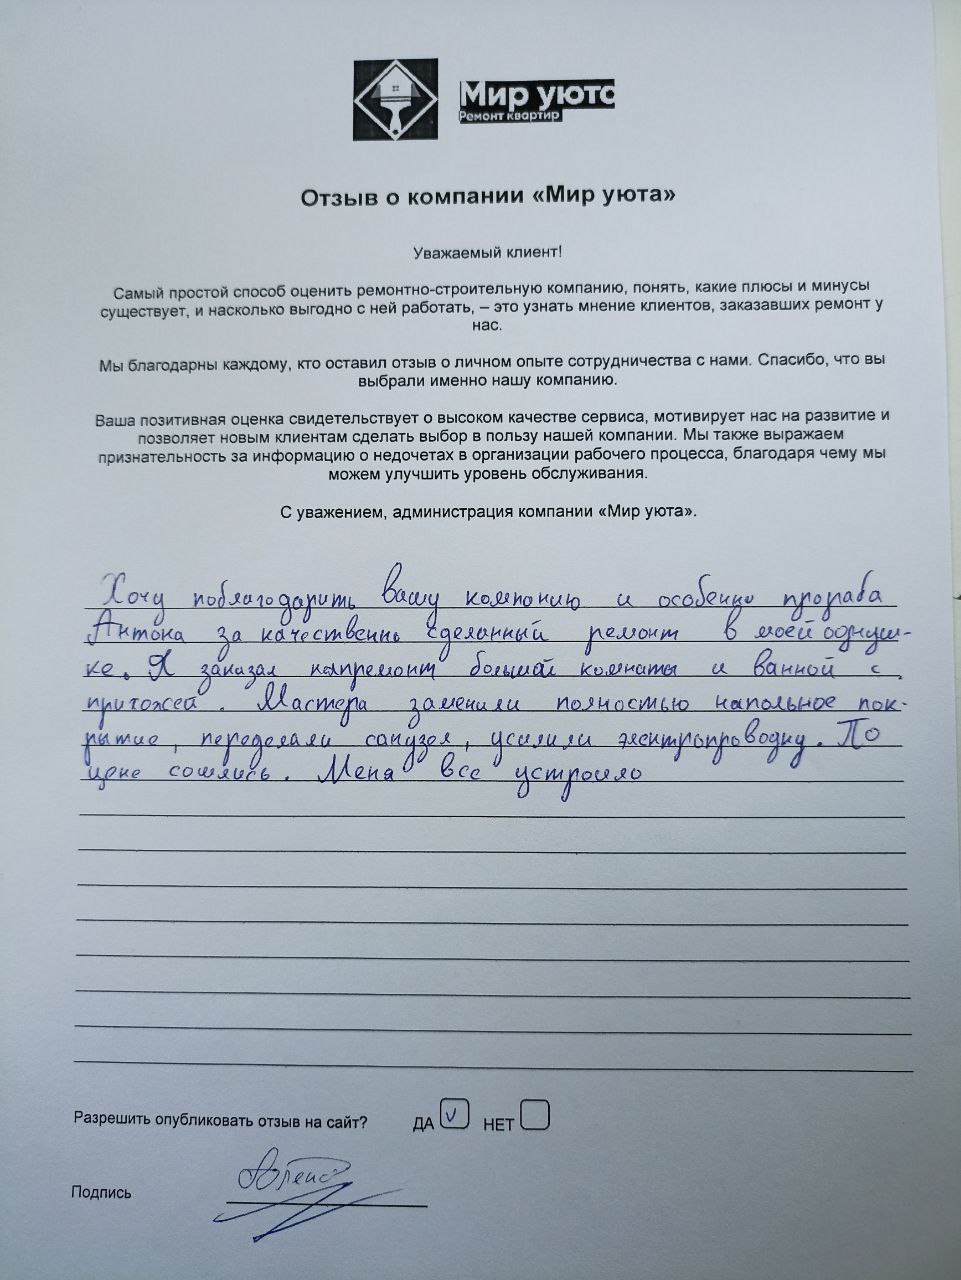 Мир уюта
Ремонт квартир
Отзыв о компании «Мир уюта»
Уважаемый клиент!
Самый простой способ оценить ремонтно-строительную компанию, понять, какие плюсы и минусы
существует, и насколько выгодно с ней работать, – это узнать мнение клиентов, заказавших ремонт у
нас.
Мы благодарны каждому, кто оставил отзыв о личном опыте сотрудничества с нами. Спасибо, что вы
выбрали именно нашу компанию.
Ваша позитивная оценка свидетельствует о высоком качестве сервиса, мотивирует нас на развитие и
позволяет новым клиентам сделать выбор в пользу нашей компании. Мы также выражаем
признательность за информацию о недочетах в организации рабочего процесса, благодаря чему мы
можем улучшить уровень обслуживания.
С уважением, администрация компании «Мир уюта».
Хочу поблагодарить вашу компанию и особенно прораба
Антона за качественно сделанный ремонт в моей однуш-
ке. Я заказал капремонт большой комнаты и ванной с
прихожей. Мастера заменили полностью напольное пок-
рытие, переделали санузел, усилили электропроводку. По
цене сошлись. Меня все устроило
Разрешить опубликовать отзыв на сайт? ДА V НЕТ
Подпись